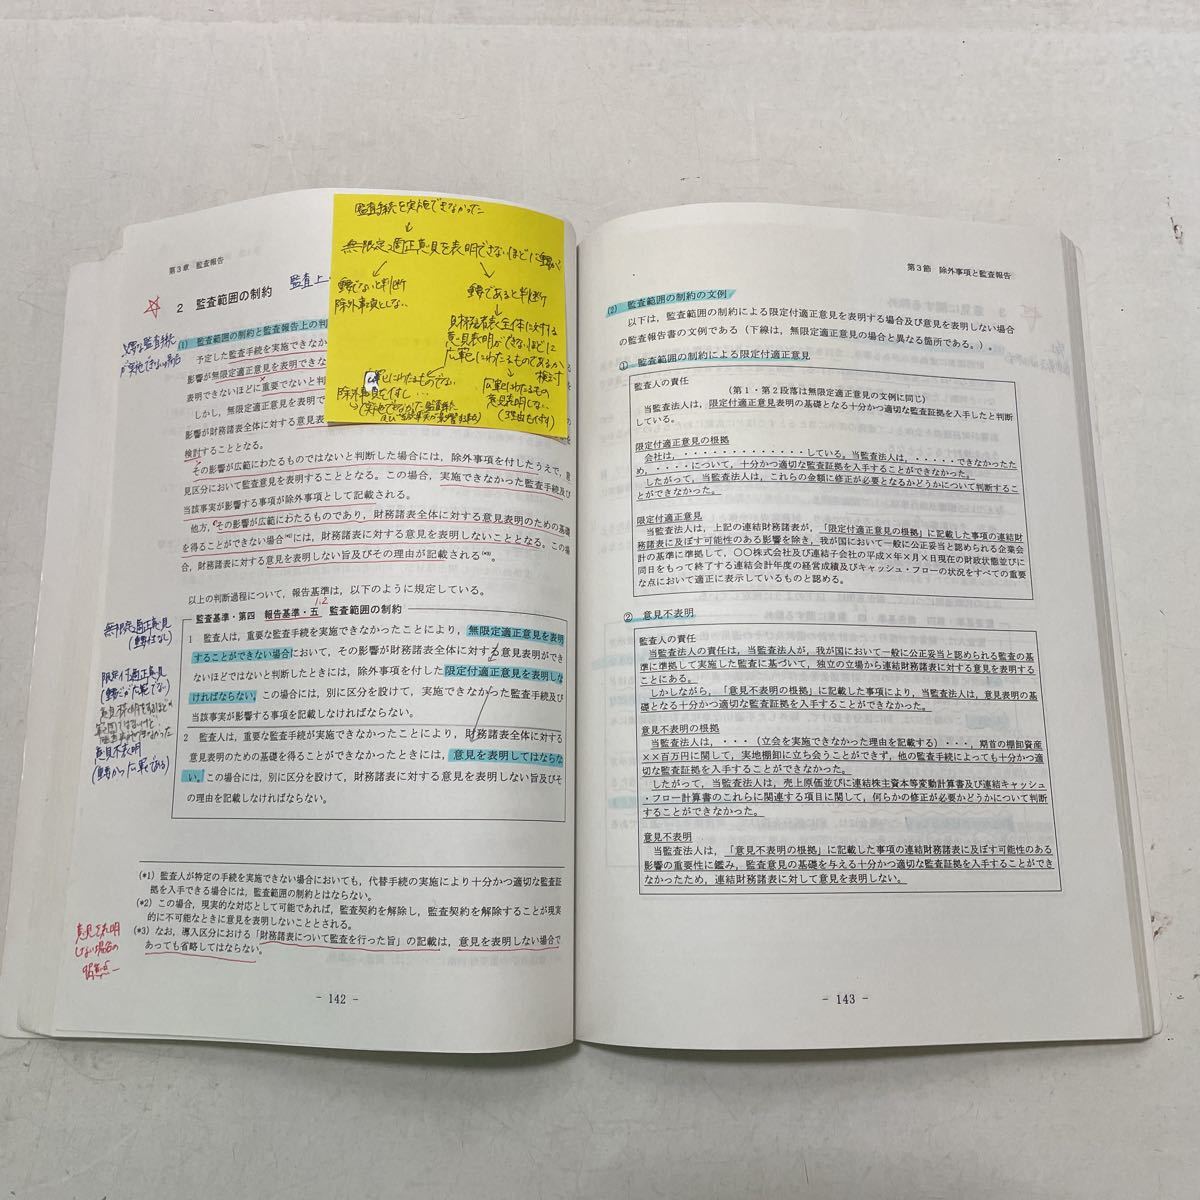 第3章 監査報告
2 監査範囲の制約
監査上
(1) 監査範囲の制約と監査報告上の判
予定した監査手続を実施できなか
影響が無限定適正意見を表明できな
表明できないほどに重要でないと判
しかし、無限定適正意見を表明で
影響が財務諸表全体に対する意見表
検討することとなる。
その影響が広範にわたるものではないと判断した場合には、除外事項を付したうえで、意
見区分において監査意見を表明することとなる。この場合、実施できなかった監査手続及び
当該事実が影響する事項が除外事項として記載される。
他方、その影響が広範にわたるものであり、財務諸表全体に対する意見表明のための基礎
を得ることができない場合(*2)には、財務諸表に対する意見を表明しないこととなる。この場
合、財務諸表に対する意見を表明しない旨及びその理由が記載される(*3)。
以上の判断過程について、報告基準は、以下のように規定している。
1,2
監査基準・第四 報告基準・五 監査範囲の制約
1 監査人は、重要な監査手続を実施できなかったことにより、無限定適正意見を表明
することができない場合において、その影響が財務諸表全体に対する意見表明ができ
ないほどではないと判断したときには、除外事項を付した限定付適正意見を表明しな
ければならない。この場合には、別に区分を設けて、実施できなかった監査手続及び
当該事実が影響する事項を記載しなければならない。
2 監査人は、重要な監査手続を実施できなかったことにより、財務諸表全体に対する
意見表明のための基礎を得ることができなかったときには、意見を表明してはならな
い。この場合には、別に区分を設けて、財務諸表に対する意見を表明しない旨及びそ
の理由を記載しなければならない。
(*1) 監査人が特定の手続を実施できない場合においても、代替手続の実施により十分かつ適切な監査証
拠を入手できる場合には、監査範囲の制約とはならない。
(*2) この場合、現実的な対応として可能であれば、監査契約を解除し、監査契約を解除することが現実
的に不可能なときに意見を表明しないこととされる。
(*3) なお、導入区分における「財務諸表について監査を行った旨」の記載は、意見を表明しない場合で
あっても省略してはならない。
- 142 -
監査手続を実施できなかった
無限定適正意見を表明できないほどに重要か
重要でないと判断
除外事項としない
重要であると判断
財務諸表全体に対する
意見表明ができないほどに
広範にわたるものであるか
検討
広範にわたるものでない
除外事項を付し…
広範にわたるもの
意見表明しない
(理由も付す)
重要な監査手続
が実施できない場合
無限定適正意見
(重要性なし)
限定付適正意見
意見不表明
(重要かつ広範である)
意見を表明
しない場合の
第3節 除外事項と監査報告
(2) 監査範囲の制約の文例
以下は、監査範囲の制約による限定付適正意見を表明する場合及び意見を表明しない場合
の監査報告書の文例である(下線は、無限定適正意見の場合と異なる箇所である。)。
① 監査範囲の制約による限定付適正意見
監査人の責任
(第1・第2段落は無限定適正意見の文例に同じ)
当監査法人は、限定付適正意見表明の基礎となる十分かつ適切な監査証拠を入手したと判断
している。
限定付適正意見の根拠
会社は、・・・・・・・・・・・・・・・している。当監査法人は、・・・・・できなかったた
め、・・・・について、十分かつ適切な監査証拠を入手することができなかった。
したがって、当監査法人は、これらの金額に修正が必要となるかどうかについて判断するこ
とができなかった。
限定付適正意見
当監査法人は、上記の連結財務諸表が、「限定付適正意見の根拠」に記載した事項の連結財
務諸表に及ぼす可能性のある影響を除き、我が国において一般に公正妥当と認められる企業会
計の基準に準拠して、○○株式会社及び連結子会社の平成×年×月×日現在の財政状態並びに
同日をもって終了する連結会計年度の経営成績及びキャッシュ・フローの状況をすべての重要
な点において適正に表示しているものと認める。
② 意見不表明
監査人の責任
当監査法人の責任は、当監査法人が、我が国において一般に公正妥当と認められる監査の基
準に準拠して実施した監査に基づいて、独立の立場から連結財務諸表に対する意見を表明する
ことにある。
しかしながら、「意見不表明の根拠」に記載した事項により、当監査法人は、意見表明の基
礎となる十分かつ適切な監査証拠を入手することができなかった。
意見不表明の根拠
当監査法人は、・・・(立会を実施できなかった理由を記載する)・・・、期首の棚卸資産
××百万円に関して、実地棚卸に立ち会うことができず、他の監査手続によっても十分かつ適
切な監査証拠を入手することができなかった。
したがって、当監査法人は、売上原価並びに連結株主資本等変動計算書及び連結キャッシュ
・フロー計算書のこれらに関連する項目に関して、何らかの修正が必要かどうかについて判断
することができなかった。
意見不表明
当監査法人は、「意見不表明の根拠」に記載した事項の連結財務諸表に及ぼす可能性のある
影響の重要性に鑑み、監査意見の基礎を与える十分かつ適切な監査証拠を入手することができ
なかったため、連結財務諸表に対して意見を表明しない。
- 143 -